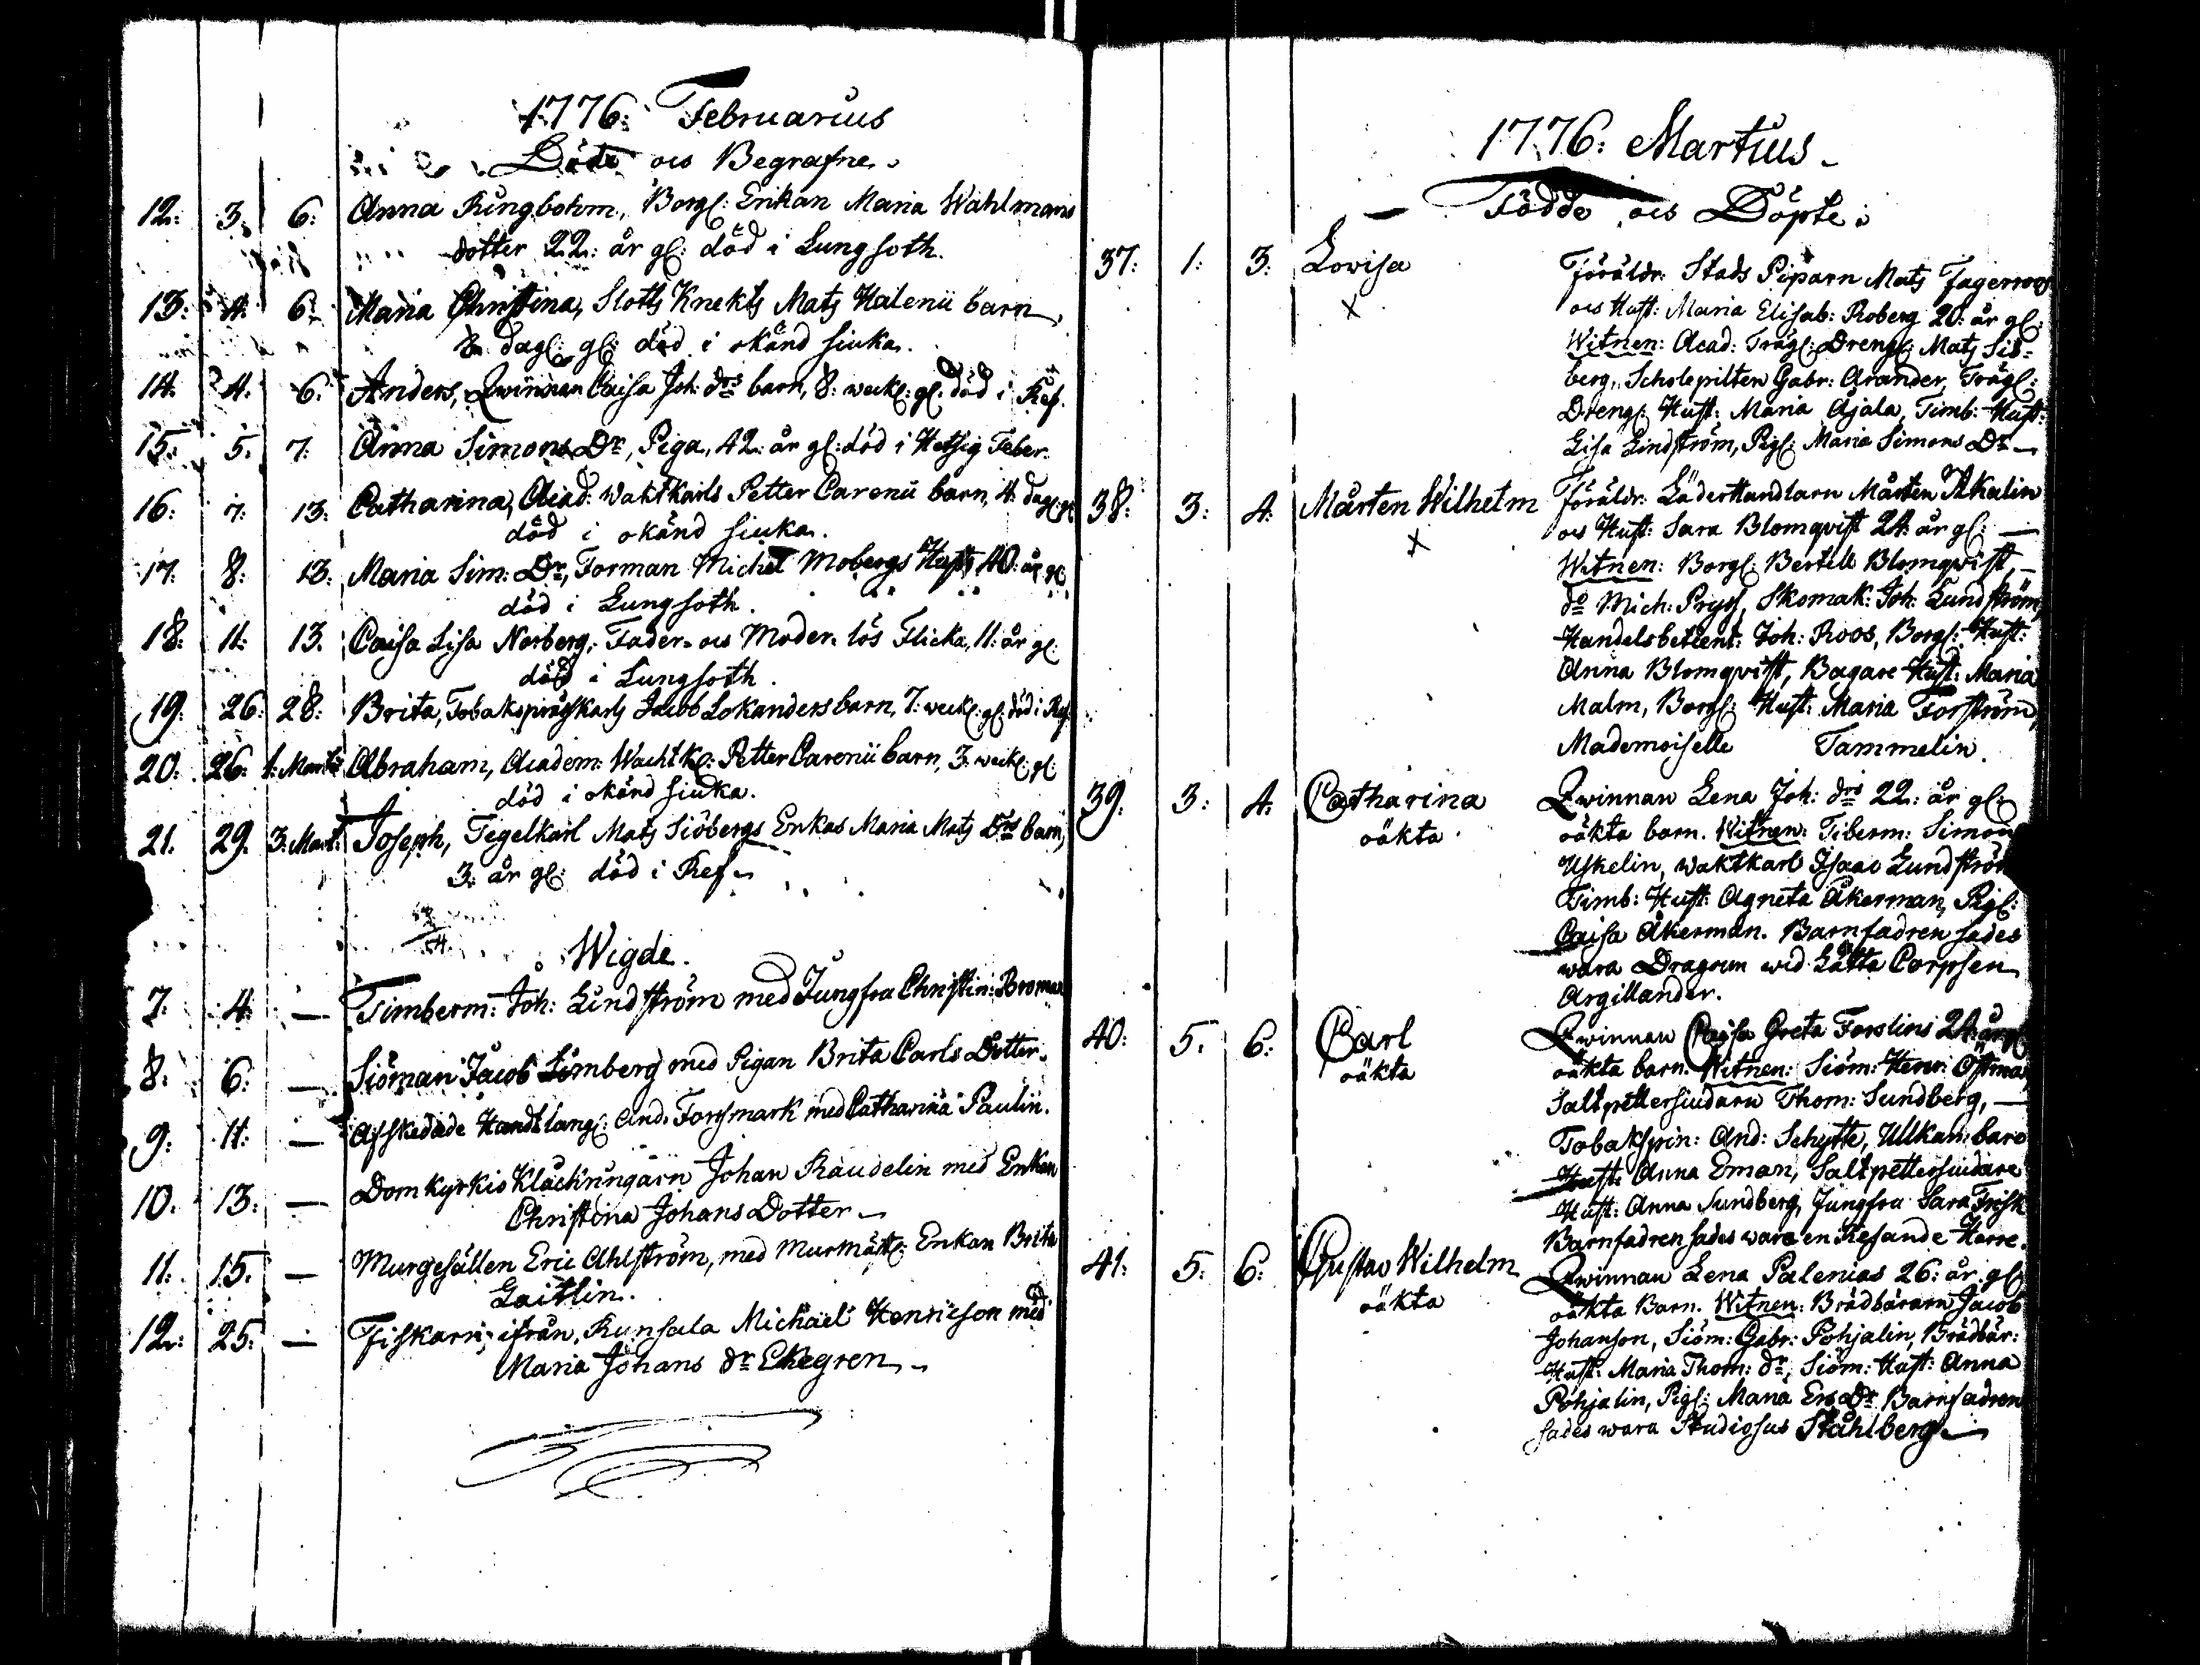 1776: Februarius
Döde ocs Begrafne.
12: 3. 6: Anna Rungbohm, Borgl: Enkan Maria Wahlmans
dotter 22: år gl: död i Lungsoth.
13: 4. 6: Maria Christina, Slotts Knekts Mats Halenii barn,
8 dagl: gl: död i okänd siuka.
14. 4. 6. Anders, Qwinnan Caisa Joh: drs barn, 8: weckl: gl: död i Ref.
15. 5. 7: Anna Simons Dr, Piga, 42: år gl: död i Hetsig Feber.
16: 7: 13: Catharina, Acad: Waktkarls Petter Carenii barn, 4 dagl: gl:
död i okänd siuka.
17: 8: 13: Maria Sim: Dr, Forman Michel Mobergs Hust: 40: år gl:
död i Lungsoth.
18: 11: 13. Caisa Lisa Norberg, Fader- ocs Moder- lös Flicka, 11: år gl:
död i Lungsoth.
19: 26: 28: Brita, Jacob Lokanders barn, 7: weckl: gl: död i Ref.
20: 26: 1: Martii Abraham, Academ: Wacht Kl: Petter Carenii barn, 3: weckl: gl:
död i okänd siuka.
21. 29. 3: Mart: Joseph, Tegelkarl Mats Siöbergs Enkas Maria Mats Drs barn,
3: år gl: död i Ref.
Wigde.
7. 4. — Timberm: Joh: Lindström med Jungfru Christin: Broman
8. 6. — Siöman Jacob Limberg med Pigan Brita Carls Dotter.
9. 11: — Afskedade Handtlang: And: Forssmark med Catharina Paulin.
10. 13. — Domkyrkio Klåckringarn Johan Raudelin med Enkan
Christina Johans Dotter.
11. 15. — Murgesällen Eric Ahlström, med Murmäst: Enkan Brita
Gaitlin.
12: 25. — Fiskarn, ifrån, Runsala Michäel Henricson med
Maria Johans dr Ekegren.
1776: Martius
Födde ocs Döpte:
37: 1: 3: Lovisa Föräldr: Stads Piparn Mats Fagerroos
x ocs Hust: Maria Elisab: Roberg 20: år gl:
Witnen: Acad: Trägl: Drengl: Mats Sis-
berg, Scholepilten Gabr: Arander, Trägl:
Drengl: Hust: Maria Ajala, Timb: Hust:
Lisa Lindström, Pigl: Maria Simons Dr
38: 3: 4: Mårten Wilhelm Föräldr: Läderhandlarn Mårten Akalin
x ocs Hust: Sara Blomqvist 24 år gl:
Witnen: Borgl: Bertell Blomqvist,
do Mich: Pryss, Skomak: Joh: Lundström,
Handelsbetient: Joh: Roos, Borgl: Hust:
Anna Blomqvist, Bagare Hust: Maria
Malm, Borgl: Hust: Maria Forström,
Mademoiselle Tammelin.
39: 3: 4: Catharina Qwinnan Lena Joh: drs 22: år gl:
oäkta oäkta barn. Witnen: Tiberm: Simon
Uskelin, waktkarl Isaac Lundström
Timb: Hust: Agneta Åkerman, Pigl:
Caisa Åkerman. Barnfadren sades
wara Dragoun wid Lätta Corpsen
Argillander.
40: 5. 6: Carl Qwinnan Caisa Greta Forslins 24 år gl:
oäkta oäkta barn. Witnen: Siöm: Henr: Östman
Saltpettersiudarn Thom: Sundberg,
Tobakspin: And: Schytte, Ullkam: bare
Hust: Anna Eman, Saltpettersiudare
Hust: Anna Sundberg, Jungfru Sara Frisk
Barnfadren sades wara en Resande Herre.
41: 5: 6: Gustav Wilhelm Qwinnan Lena Palenias 26: år gl:
oäkta oäkta Barn. Witnen: Brädbärarn Jacob
Johanson, Siöm: Gabr: Pohjalin, Brädbär:
Hust: Maria Thom: dr, Siöm: Hust: Anna
Pohjalin, Pigl: Maria Ers Dr. Barnfadren
sades wara Studiosus Ståhlberg